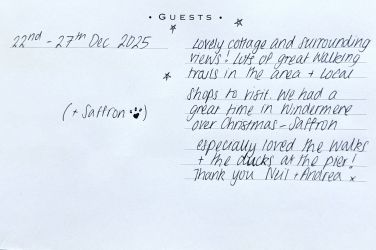 • GUESTS •
22nd - 27th Dec 2025
(+ Saffron)
Lovely cottage and surrounding
views! Lots of great walking
trails in the area + local
shops to visit. We had a
great time in Windermere
over Christmas - Saffron
especially loved the walks
+ the ducks at the pier!
Thank you Neil + Andrea x